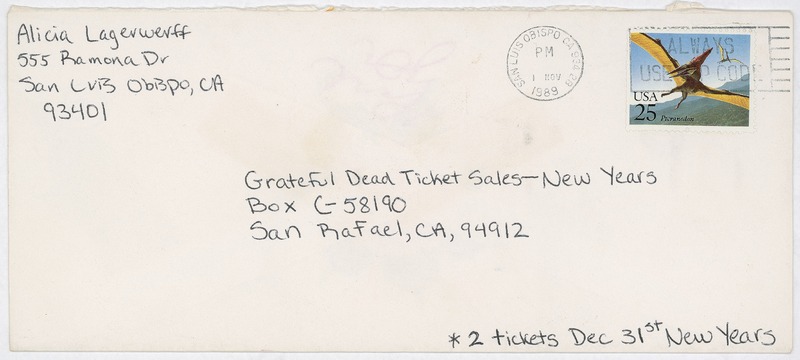 Alicia Lagerwerff
555 Ramona Dr
San Luis Obispo, CA
93401
SAN LUIS OBISPO CA
PM
1 NOV
1989
ALWAYS
USE ZIP CODE
USA
25 Pteranodon
Grateful Dead Ticket Sales—New Years
Box C-58190
San Rafael, CA, 94912
* 2 tickets Dec 31st New Years